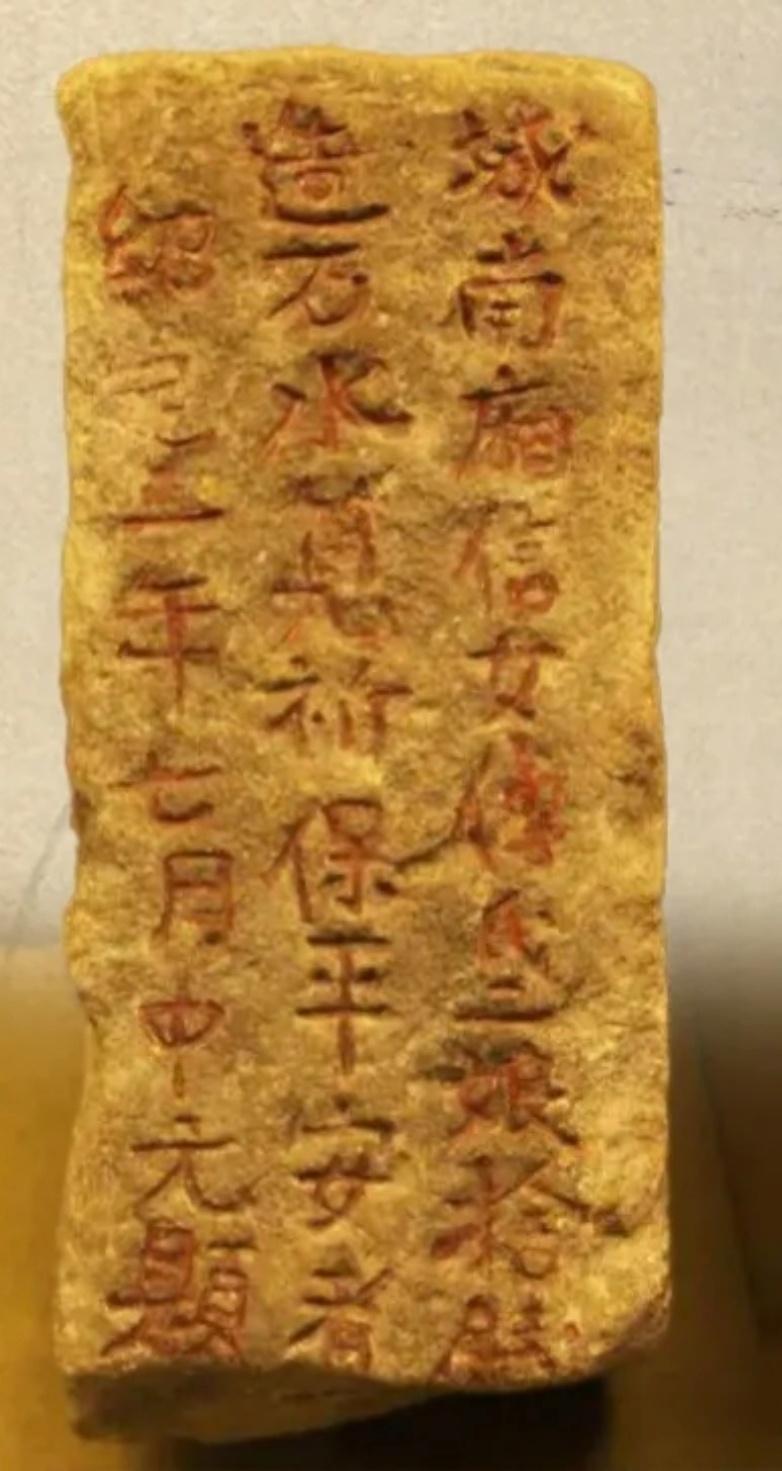 城南廂信女傅氏二娘捨錢
造石水筧祈保平安者
紹定三年七月中元題